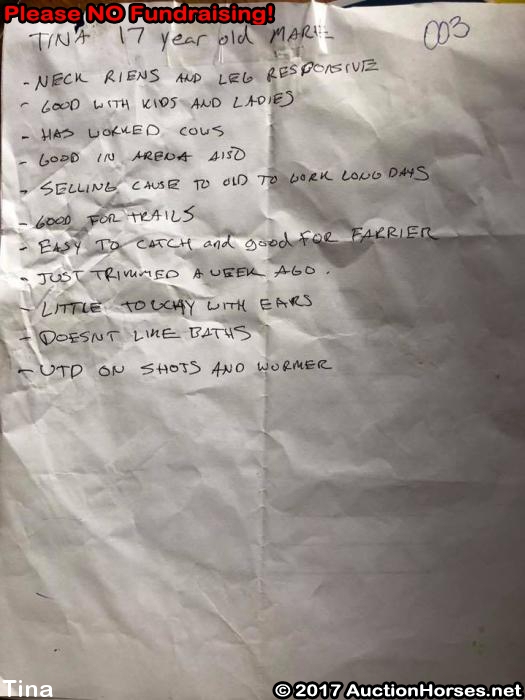 Please NO Fundraising!
TINA 17 year old MARE
003
- NECK RIENS AND LEG RESPONSIVE
- GOOD WITH KIDS AND LADIES
- HAS WORKED COWS
- GOOD IN ARENA ALSO
- SELLING CAUSE TO OLD TO WORK LONG DAYS
- GOOD FOR TRAILS
- EASY TO CATCH and good FOR FARRIER
- JUST TRIMMED A WEEK AGO.
- LITTLE TOUCHY WITH EARS
- DOESNT LIKE BATHS
- UTD ON SHOTS AND WORMER
Tina
© 2017 AuctionHorses.net